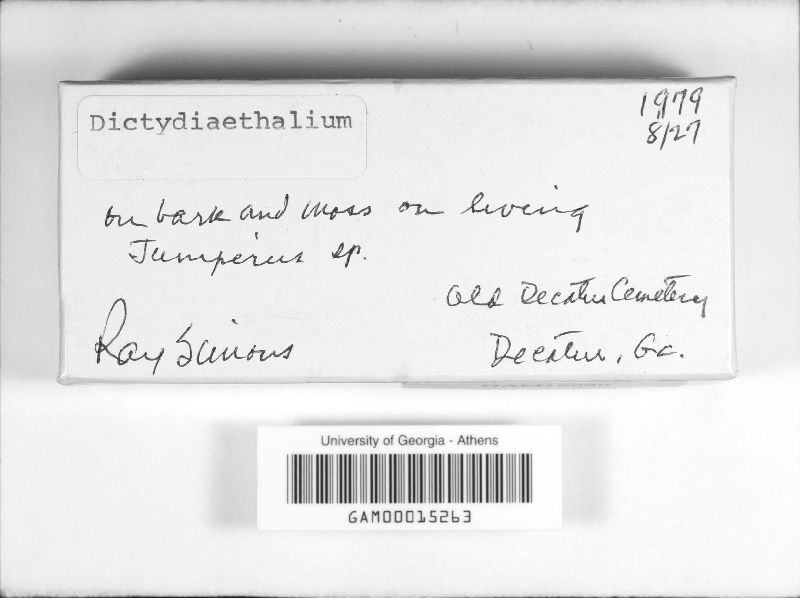 Dictydiaethalium
1979
8/27
on bark and moss on living
Juniperus sp.
Old Decatur Cemetery
Ray Simons
Decatur, Ga.
University of Georgia - Athens
GAM00015263